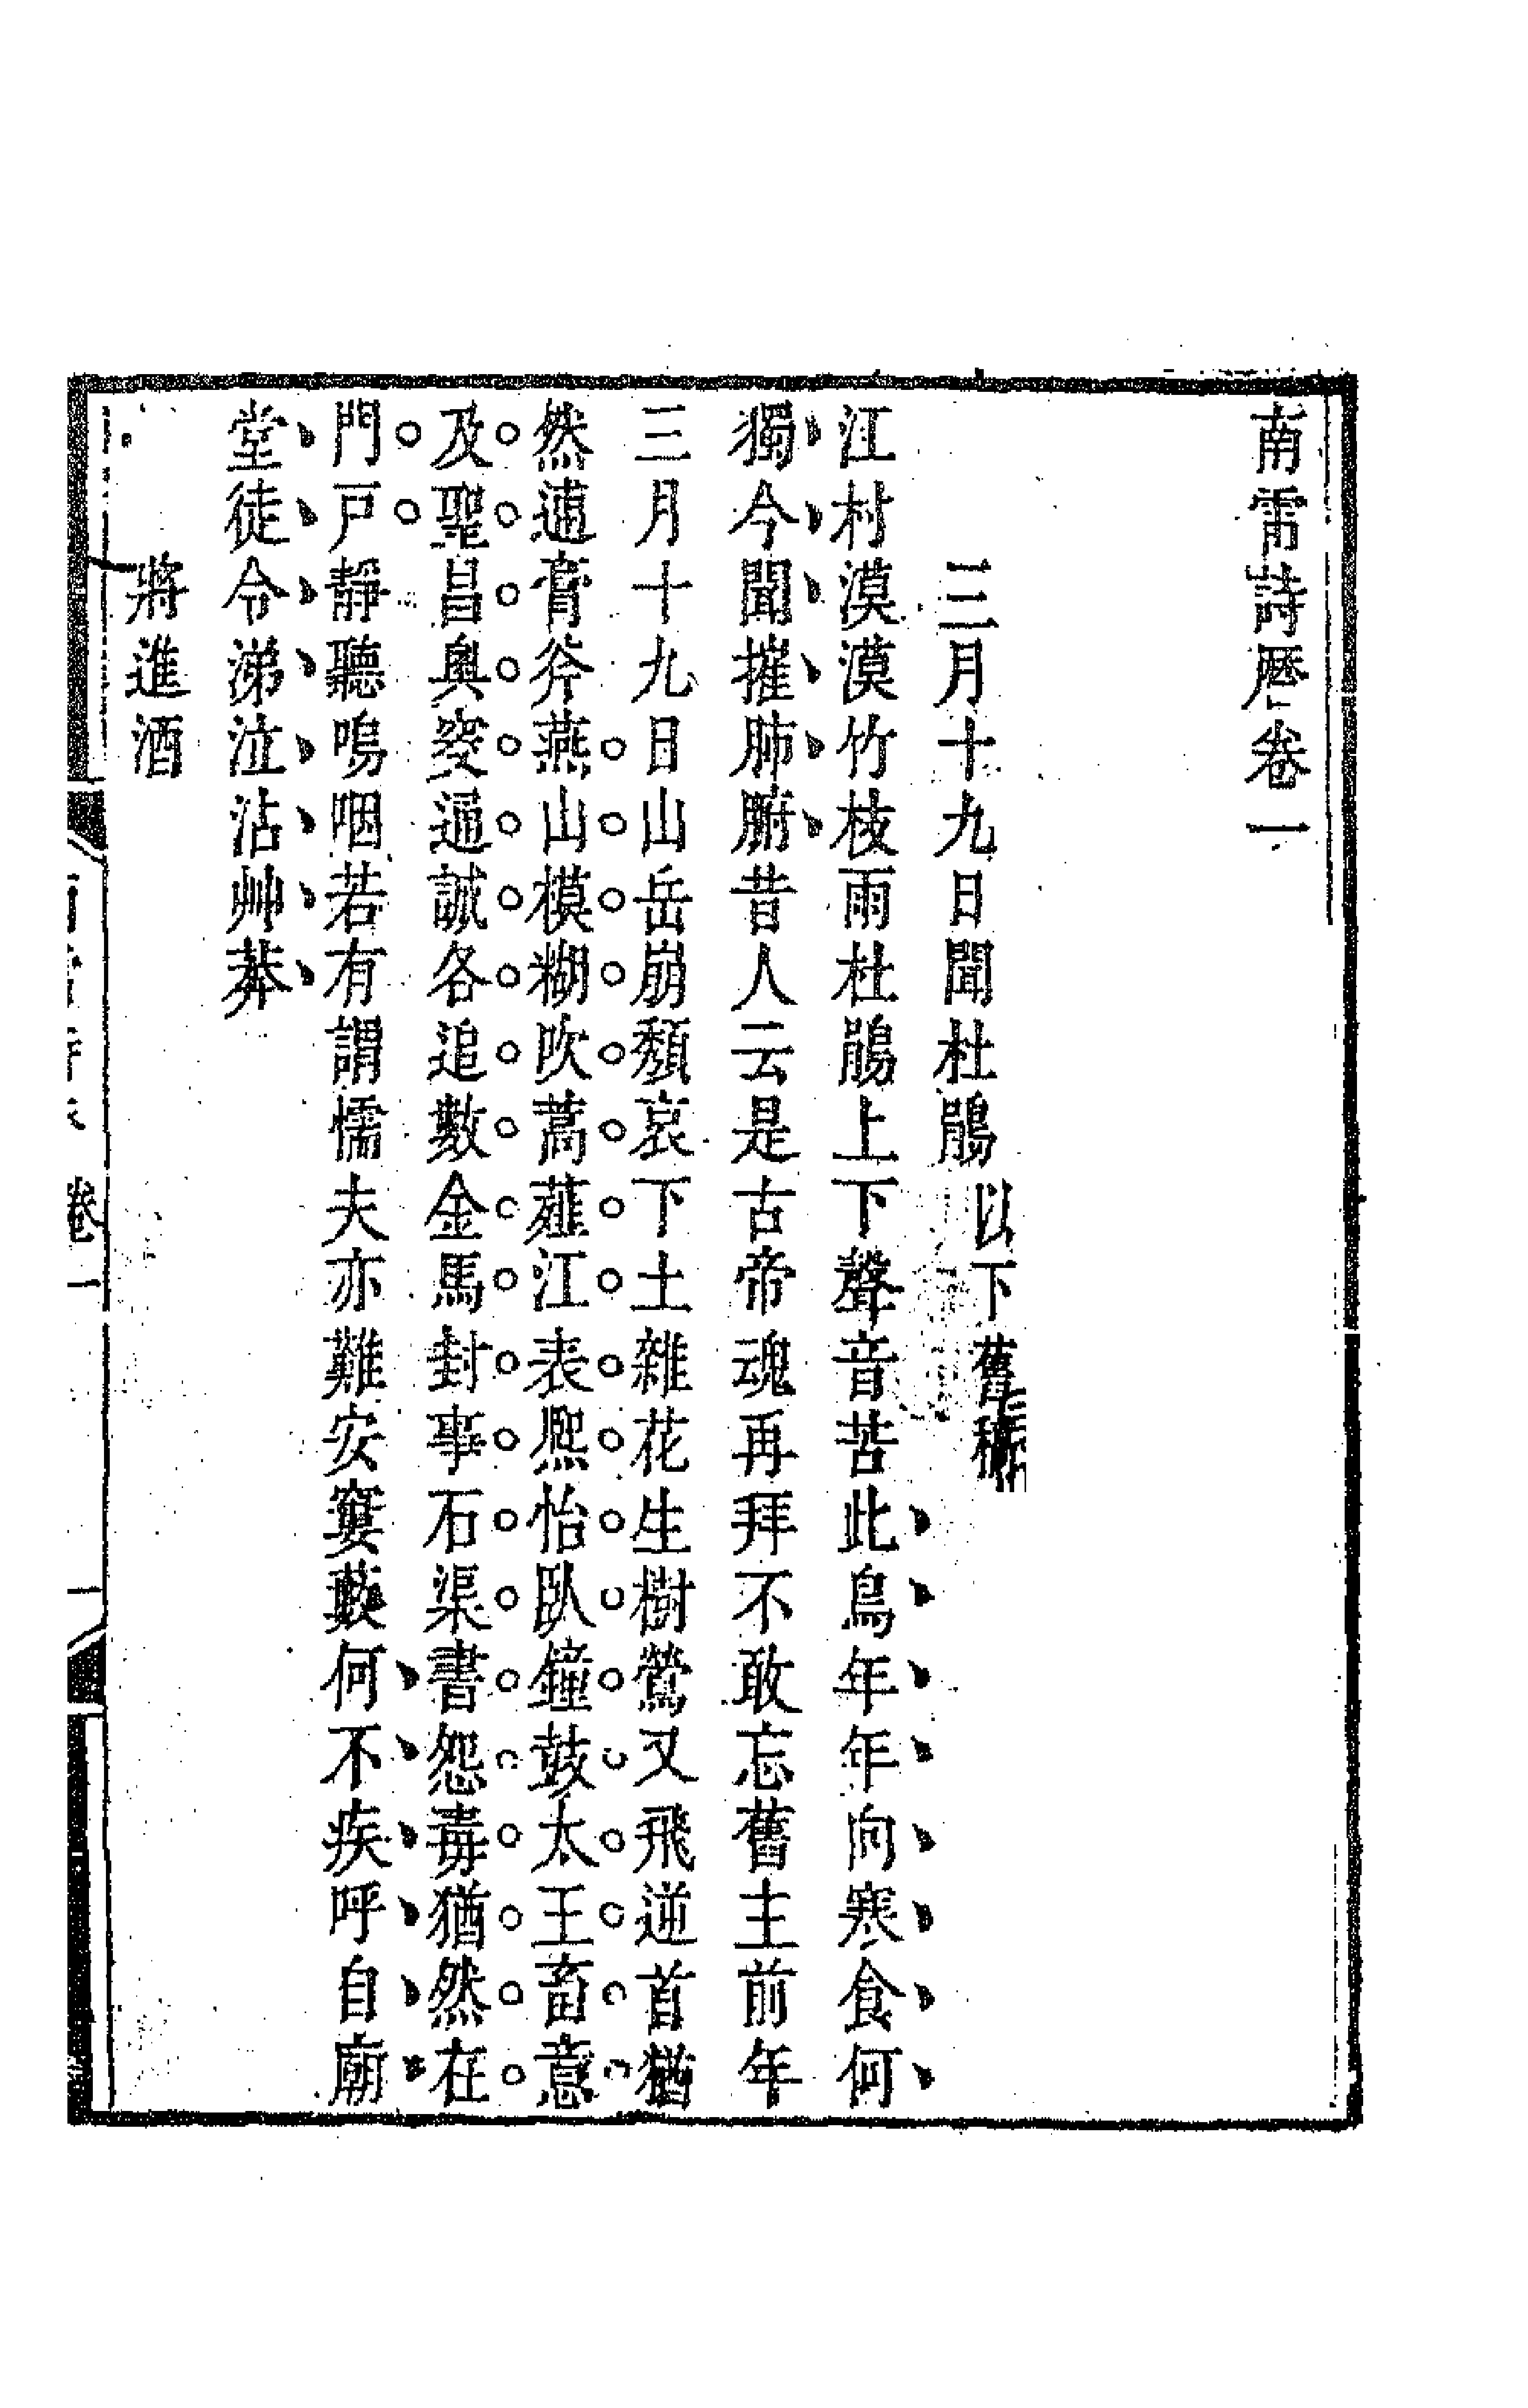 南雷詩曆卷一
三月十九日聞杜鵑 以下舊稿
江村漠漠竹枝雨杜鵑上下聲音苦此鳥年年向寒食何
獨今聞摧肺腑昔人云是古帝魂再拜不敢忘舊主前年
三月十九日山岳崩頹哀下土雜花生樹鶯又飛逆首猶
然逋膏斧燕山模糊吹蒿薤江表熈怡臥鐘鼓太王畜意
及聖昌奥窔通誠各追數金馬封事石渠書怨毒猶然在
門戸靜聽嗚咽若有謂懦夫亦難安窶藪何不疾呼自廟
堂徒令涕泣沾艸莽
將進酒
卷一 一